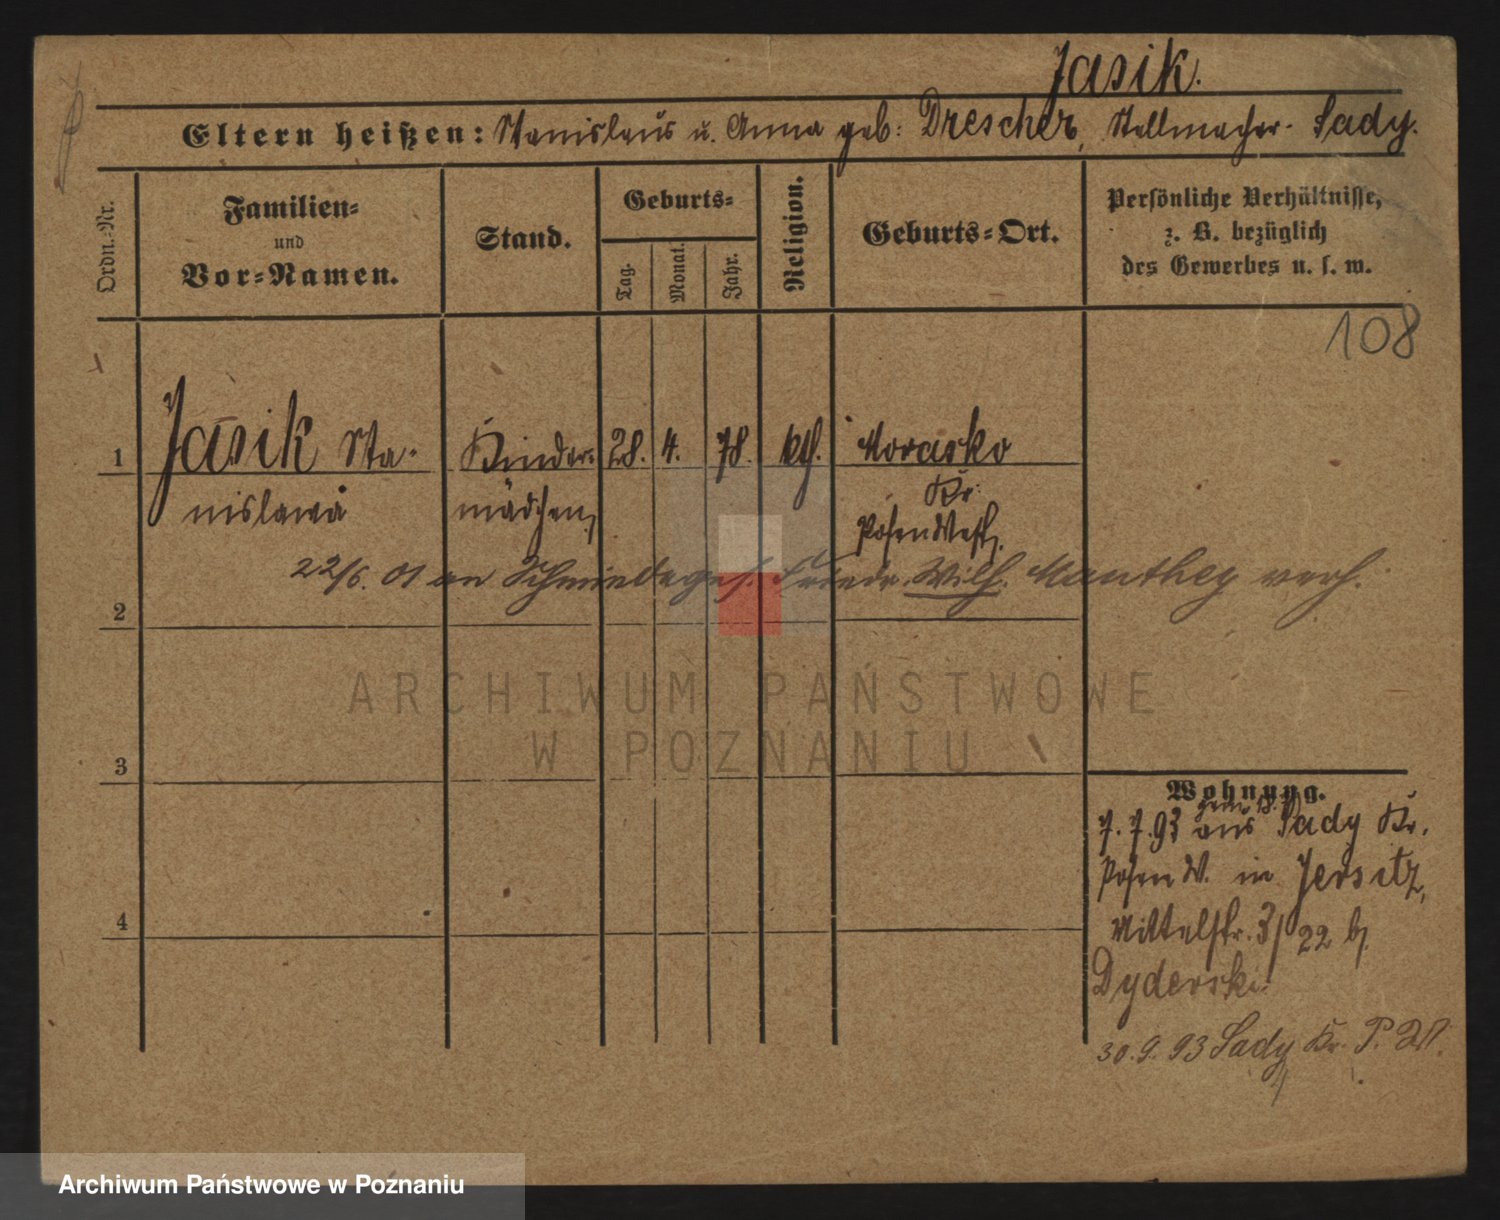 Jasik.
Eltern heißen: Stanislaus u. Anna geb: Drescher, Stellmacher- Sady.
Ordn.-Nr.
Familien-
und
Vor-Namen.
Stand.
Geburts-
Tag.
Monat.
Jahr.
Religion.
Geburts-Ort.
Persönliche Verhältnisse,
z. B. bezüglich
des Gewerbes u. s. w.
108
1 Jasik Sta- Kinder- 28. 4. 78. kth. Morasko
nislawa mädchen Kr.
Posen West
22/6. 01 an Schmiedeges. Friedr. Wilh. Manthey verh.
2
ARCHIWUM PAŃSTWOWE
W POZNANIU
3
Wohnung.
7. 7. 93 aus Sady Kr.
Posen W. in Jersitz,
Mittelstr. 3/22 b/
Dyderski
30. 9. 93 Sady Kr. P. W.
4
Archiwum Państwowe w Poznaniu